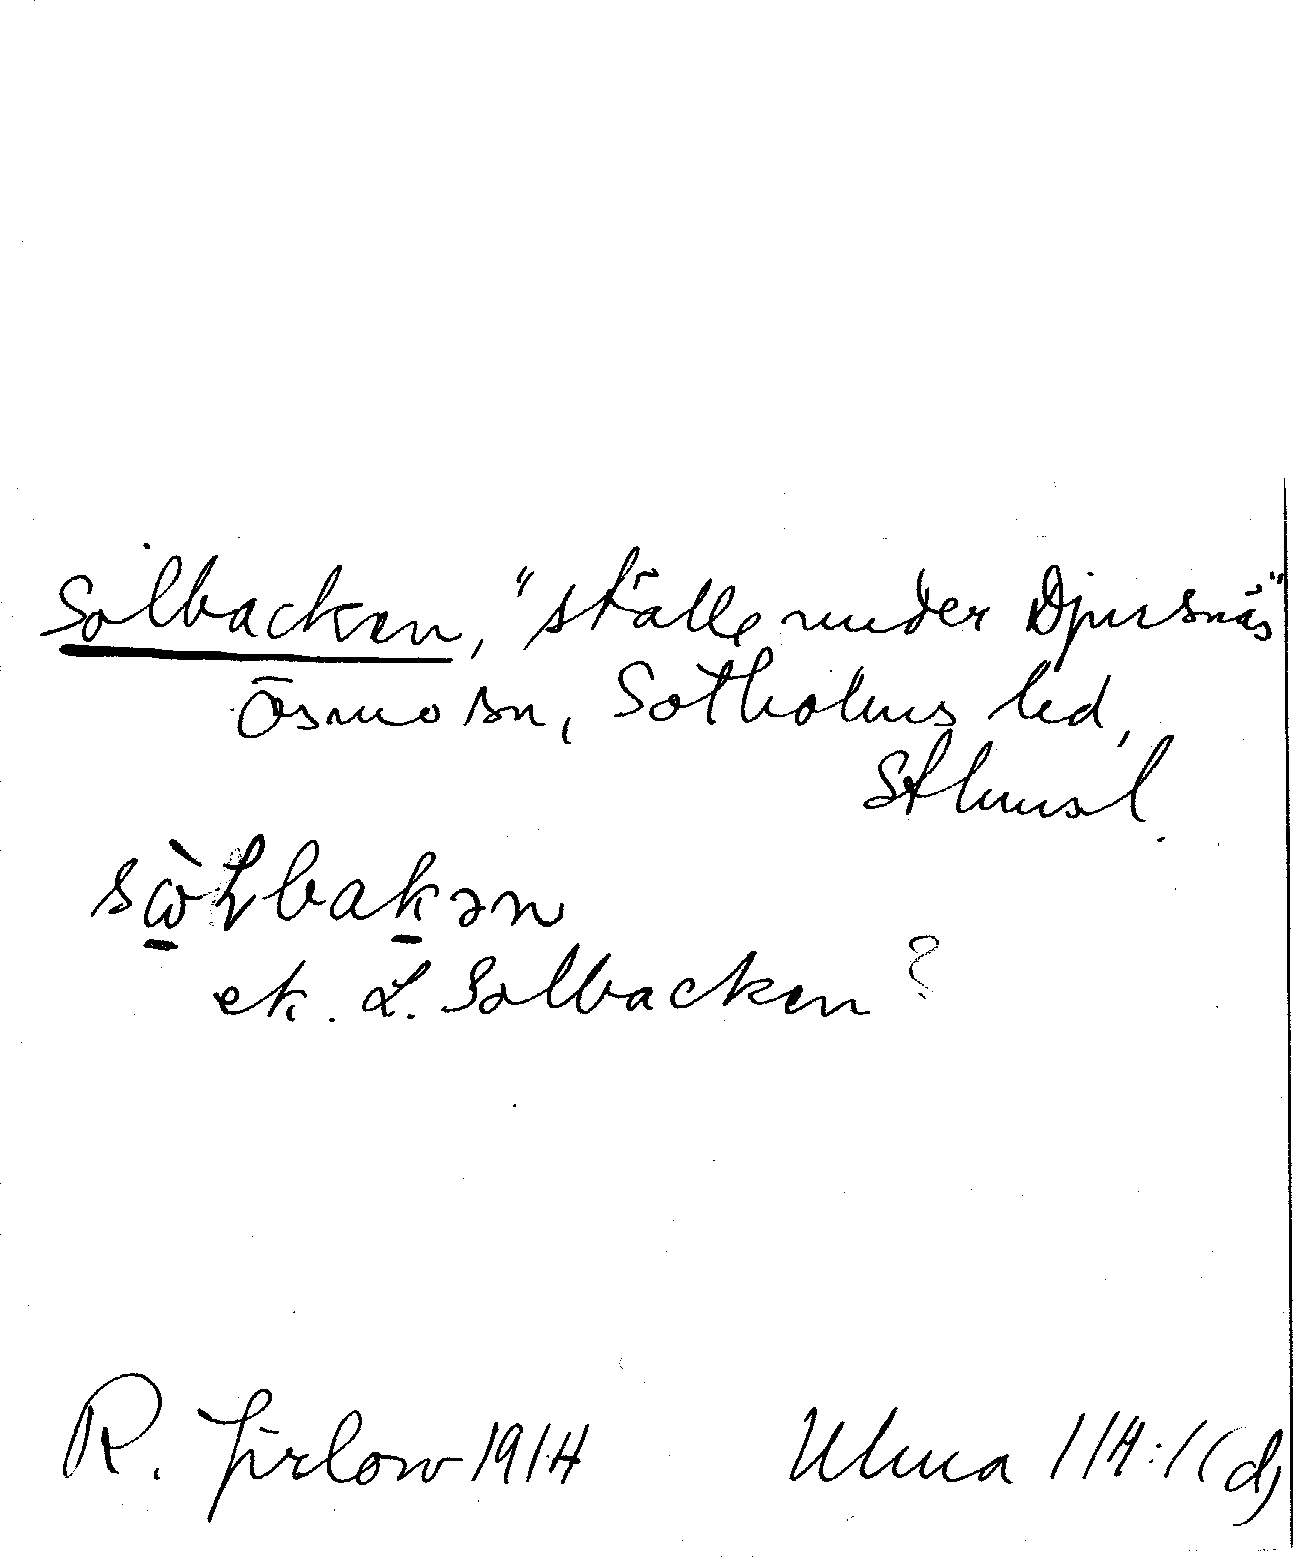 Solbacken, "ställe under Djursnäs"
Ösmo sn, Sotholms hd,
Sthmsl.
sὼ̲łbak̲ən
ek. L. Solbacken?
R. Jirlow 1914 Ulma 114:1(d)